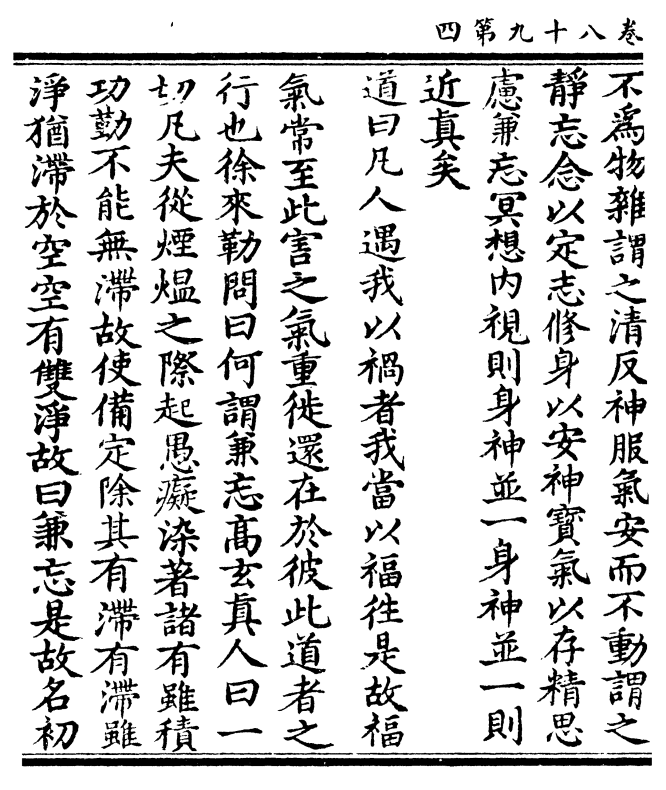 卷八十九第四
不爲物雜謂之清反神服氣安而不動謂之
靜忘念以定志修身以安神寶氣以存精思
慮兼忘冥想内視則身神並一身神並一則
近真矣
道曰凡人遇我以禍者我當以福往是故福
氣常至此害之氣重徙還在於彼此道者之
行也徐來勒問曰何謂兼忘高玄真人曰一
切凡夫從煙熅之際起愚癡染著諸有雖積
功勤不能無滯故使備定除其有滯有滯雖
淨猶滯於空空有雙淨故曰兼忘是故名初